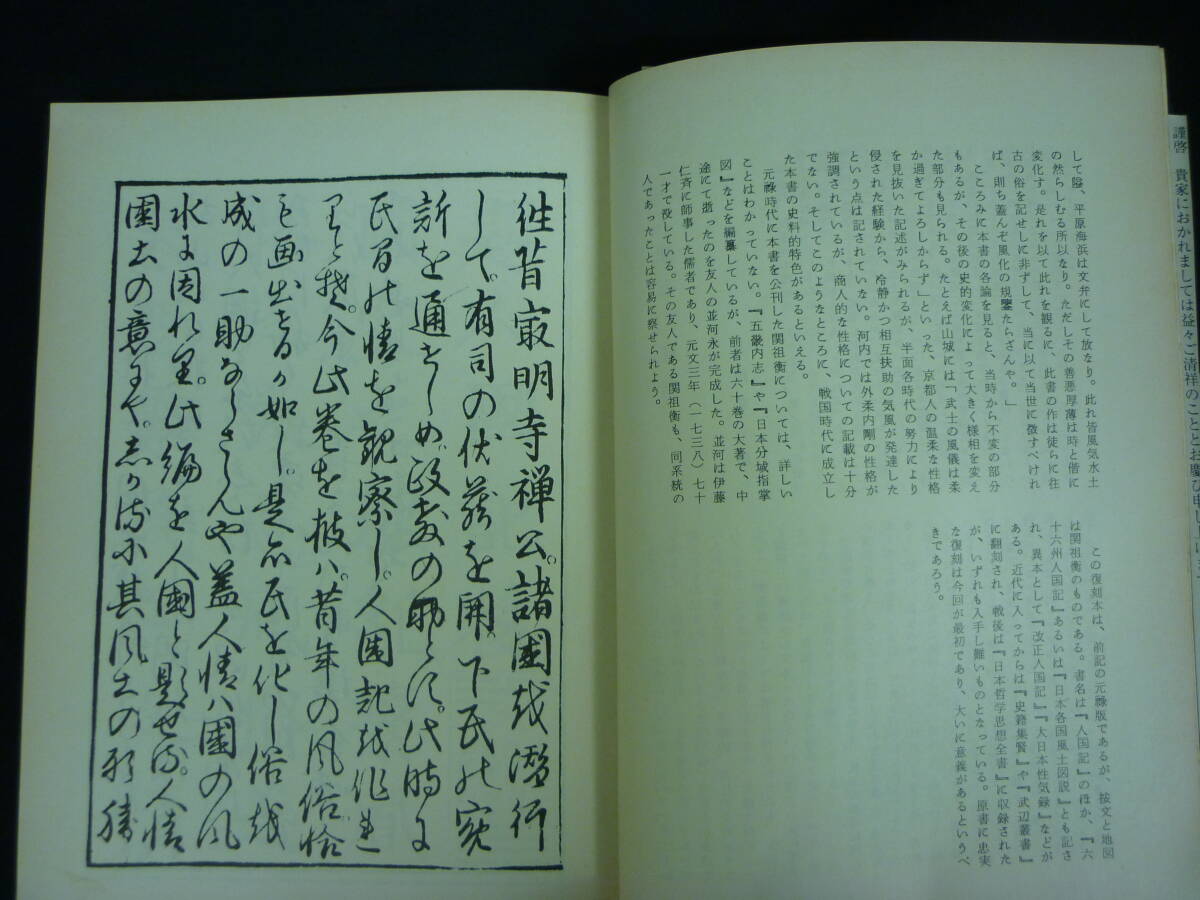 謹啓　貴家におかれましては益々ご清祥のこととお慶び申し上げま
して隘、平原海浜は文弁にして放なり。此れ皆風気水土
の然らしむる所以なり。ただしその善悪厚薄は時と偕に
変化す。是れを以て此れを観るに、此書の作は徒らに往
古の俗を記せしに非ずして、当に以て当世に徴すべけれ
ば、則ち蓋んぞ風化の規鑒たらざんや。」
こころみに本書の各論を見ると、当時から不変の部分
もあるが、その後の史的変化によって大きく様相を変え
た部分も見られる。たとえば山城には「武士の風儀は柔
か過ぎてよろしからず」といった、京都人の温柔な性格
を見抜いた記述がみられるが、半面各時代の努力により
侵された経験から、冷静かつ相互扶助の気風が発達した
という点は記されていない。河内では外柔内剛の性格が
強調されているが、商人的な性格についての記載は十分
でない。そしてこのようなところに、戦国時代に成立し
た本書の史料的特色があるといえる。
元禄時代に本書を公刊した関祖衡については、詳しい
ことはわかっていない。『五畿内志』や『日本分域指掌
図』などを編纂しているが、前者は六十巻の大著で、中
途にて逝ったのを友人の並河永が完成した。並河は伊藤
仁斉に師事した儒者であり、元文三年（一七三八）七十
一才で没している。その友人である関祖衡も、同系統の
人であったことは容易に察せられよう。
この復刻本は、前記の元禄版であるが、按文と地図
は関祖衡のものである。書名は『人国記』のほか、『六
十六州人国記』あるいは『日本各国風土図説』とも記さ
れ、異本として『改正人国記』『大日本性気録』などが
ある。近代に入ってからは『史籍集覧』や『武辺叢書』
に翻刻され、戦後は『日本哲学思想全書』に収録された
が、いずれも入手し難いものとなっている。原書に忠実
な復刻は今回が最初であり、大いに意義があるというべ
きであろう。
往昔最明寺禅公。諸國越潜行
して。有司の伏蔵を開。下民の寃
訴を通ぜしめ。政教の助とす。此時に
民間の情を観察し。人国記越作れ
りと擬。今此巻を披ハ。昔年の風俗恰
も画出せるか如し。是亦民を化し俗越
成の一助ならさらんや蓋人情ハ國の風
水に因れ里。此編を人國と題せる。人情
國土の意にや。しかるに其風土の形勝